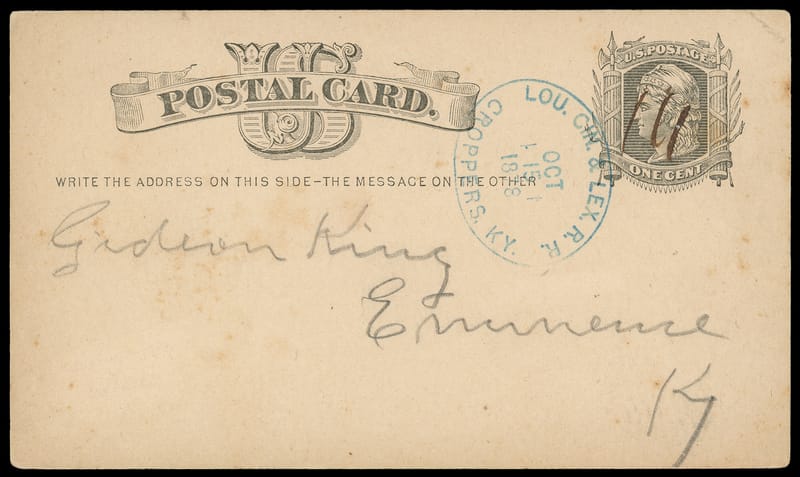 US
POSTAL CARD.
U.S. POSTAGE
ONE CENT
LOU. CIN. & LEX. R. R.
OCT
15
1878
CROPPERS, KY.
WRITE THE ADDRESS ON THIS SIDE–THE MESSAGE ON THE OTHER
Gideon King
Eminence
Ky